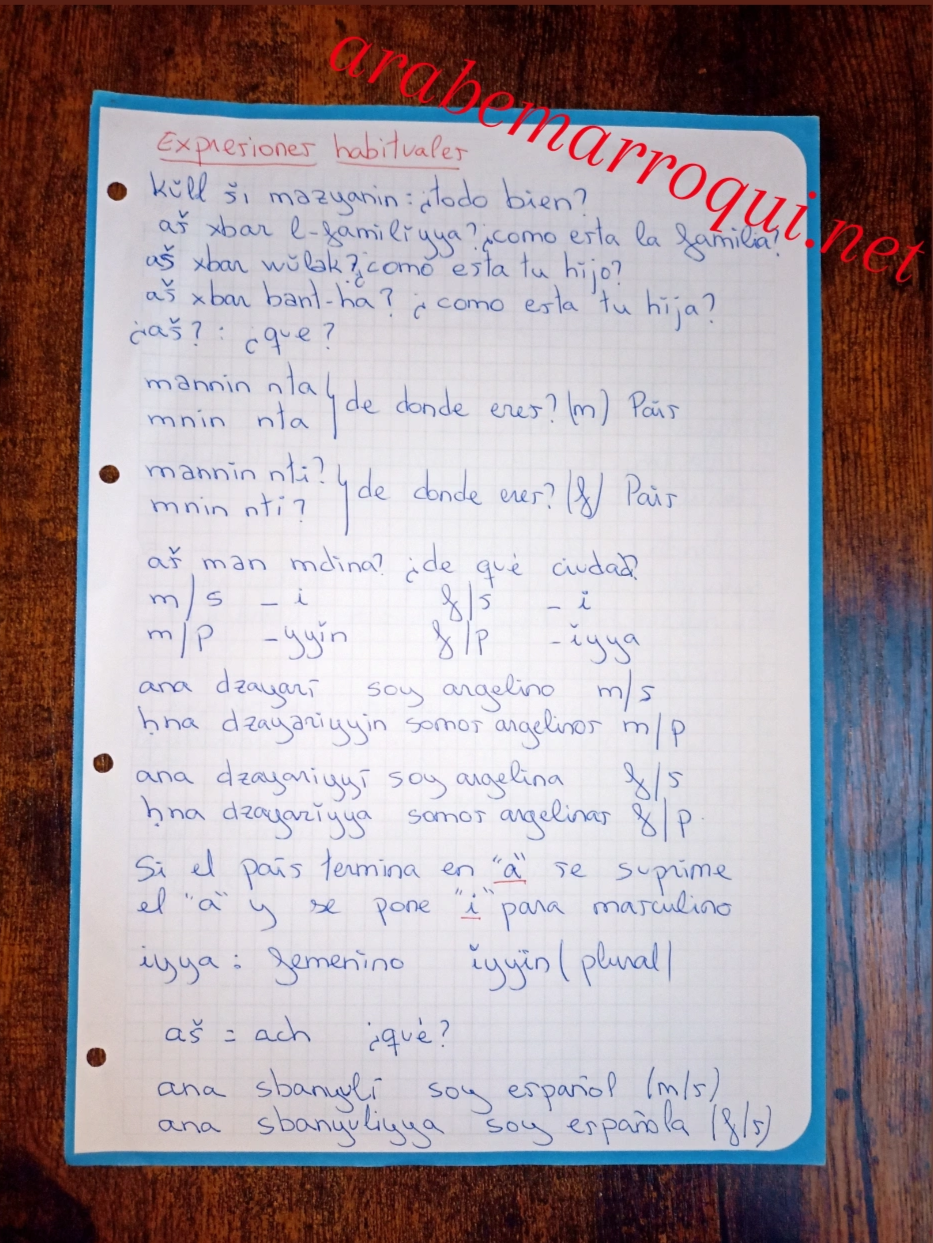 arabemarroqui.net
Expresiones habituales
kŭll ši mazyanin: ¿todo bien?
aš xbar l-familiyya? ¿como esta la familia?
aš xbar wŭlək? ¿como esta tu hijo?
aš xbar bant-ha? ¿como esta tu hija?
¿aš?: ¿que?
mənnin nta
mnin nta
de donde eres? (m) País
mənnin nti?
mnin nti?
de donde eres? (f) País
aš mən mdina? ¿de qué ciudad?
m/s - i f/s - i
m/p -yyin f/p - iyya
ana dzayari soy argelino m/s
ḥna dzayəriyyin somos argelinos m/p
ana dzayariyyi soy argelina f/s
ḥna dzayariyya somos argelinas f/p.
Si el país termina en "a" se suprime
el "a" y se pone "i" para masculino
iyya: femenino iyyin (plural)
aš = ach ¿qué?
ana sbanyuli soy español (m/s)
ana sbanyuliyya soy española (f/s)